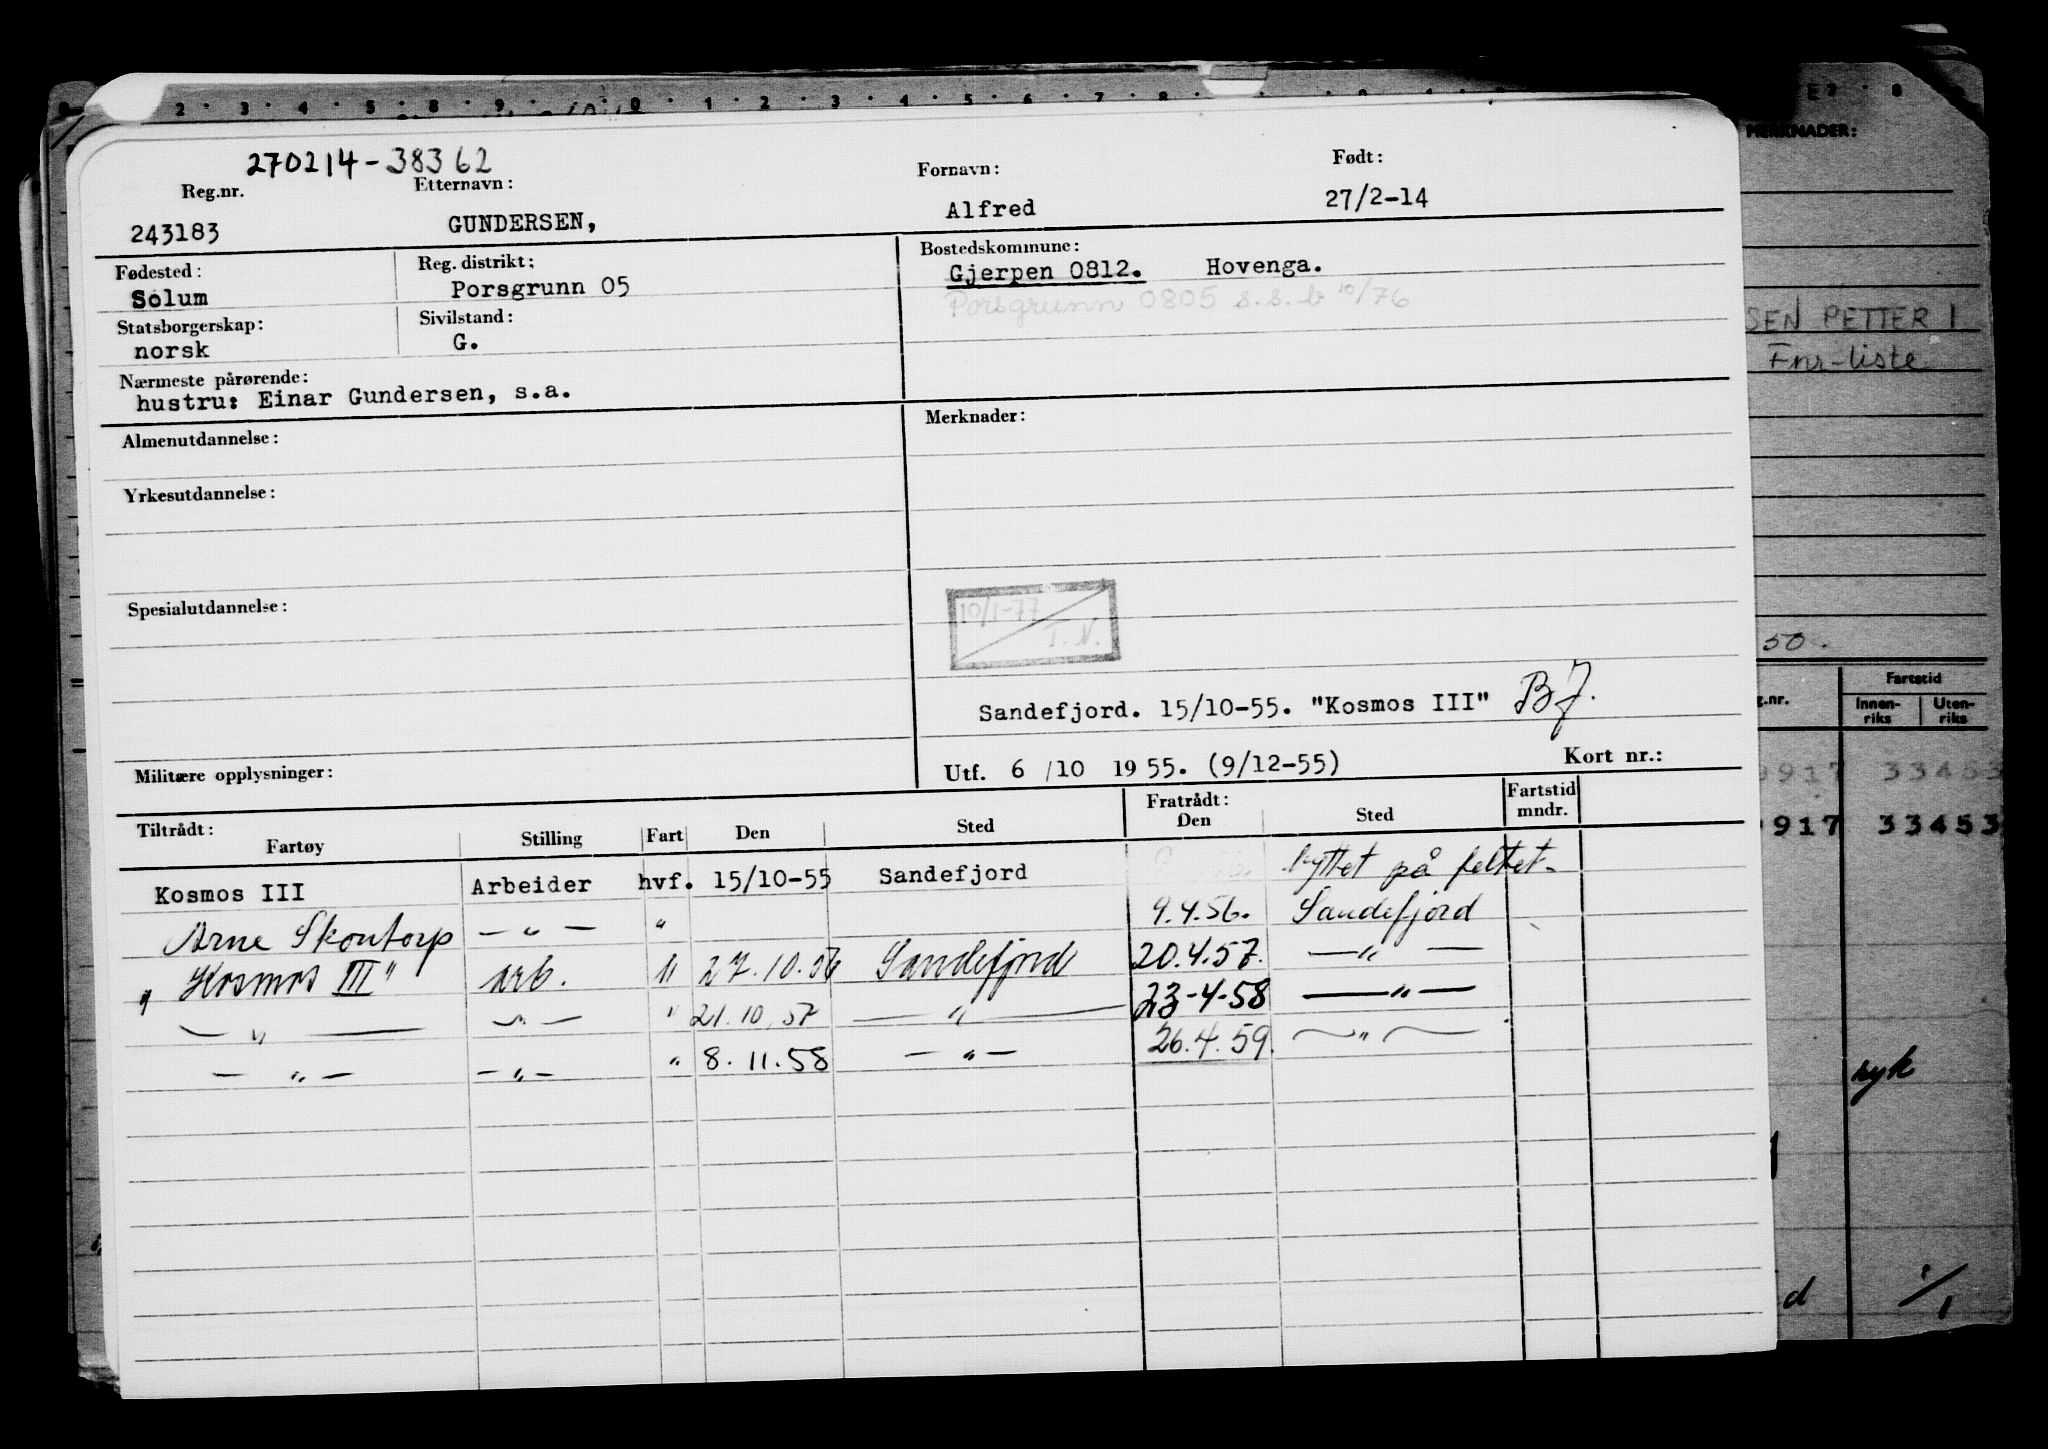 270214-38362
Reg.nr. Etternavn: Fornavn: Født:
243183 GUNDERSEN, Alfred 27/2-14
Fødested: Reg. distrikt: Bostedskommune:
Solum Porsgrunn 05 Gjerpen 0812. Hovenga.
Porsgrunn 0805 s.s.b 10/76
Statsborgerskap: Sivilstand:
norsk G.
Nærmeste pårørende:
hustru: Einar Gundersen, s.a.
Almenutdannelse: Merknader:
Yrkesutdannelse:
Spesialutdannelse:
10/1-77
T.N.
Sandefjord. 15/10-55. "Kosmos III"
Militære opplysninger: Utf. 6 /10 1955. (9/12-55) Kort nr.:
Tiltrådt: Fratrådt: Fartstid
Fartøy Stilling Fart Den Sted Den Sted mndr.
Kosmos III Arbeider hvf. 15/10-55 Sandefjord byttet på feltet.
Arne Skontorp — " — " 9.4.56. Sandefjord
"Kosmos III" arb. " 27.10.56 Sandefjord 20.4.57. — " —
— " — — " — " 21.10.57 — " — 23-4-58 — " —
— " — — " — " 8.11.58 — " — 26.4.59. — " —
2 3 4 5 8 9 0 1 2 3 4 5 6 7 8
MERKNADER:
SEN PETTER I
Fnr-liste
50.
Fartstid
g.nr. Innen-riks Uten-riks
9917 33453
9917 33453
syk
d 1/1